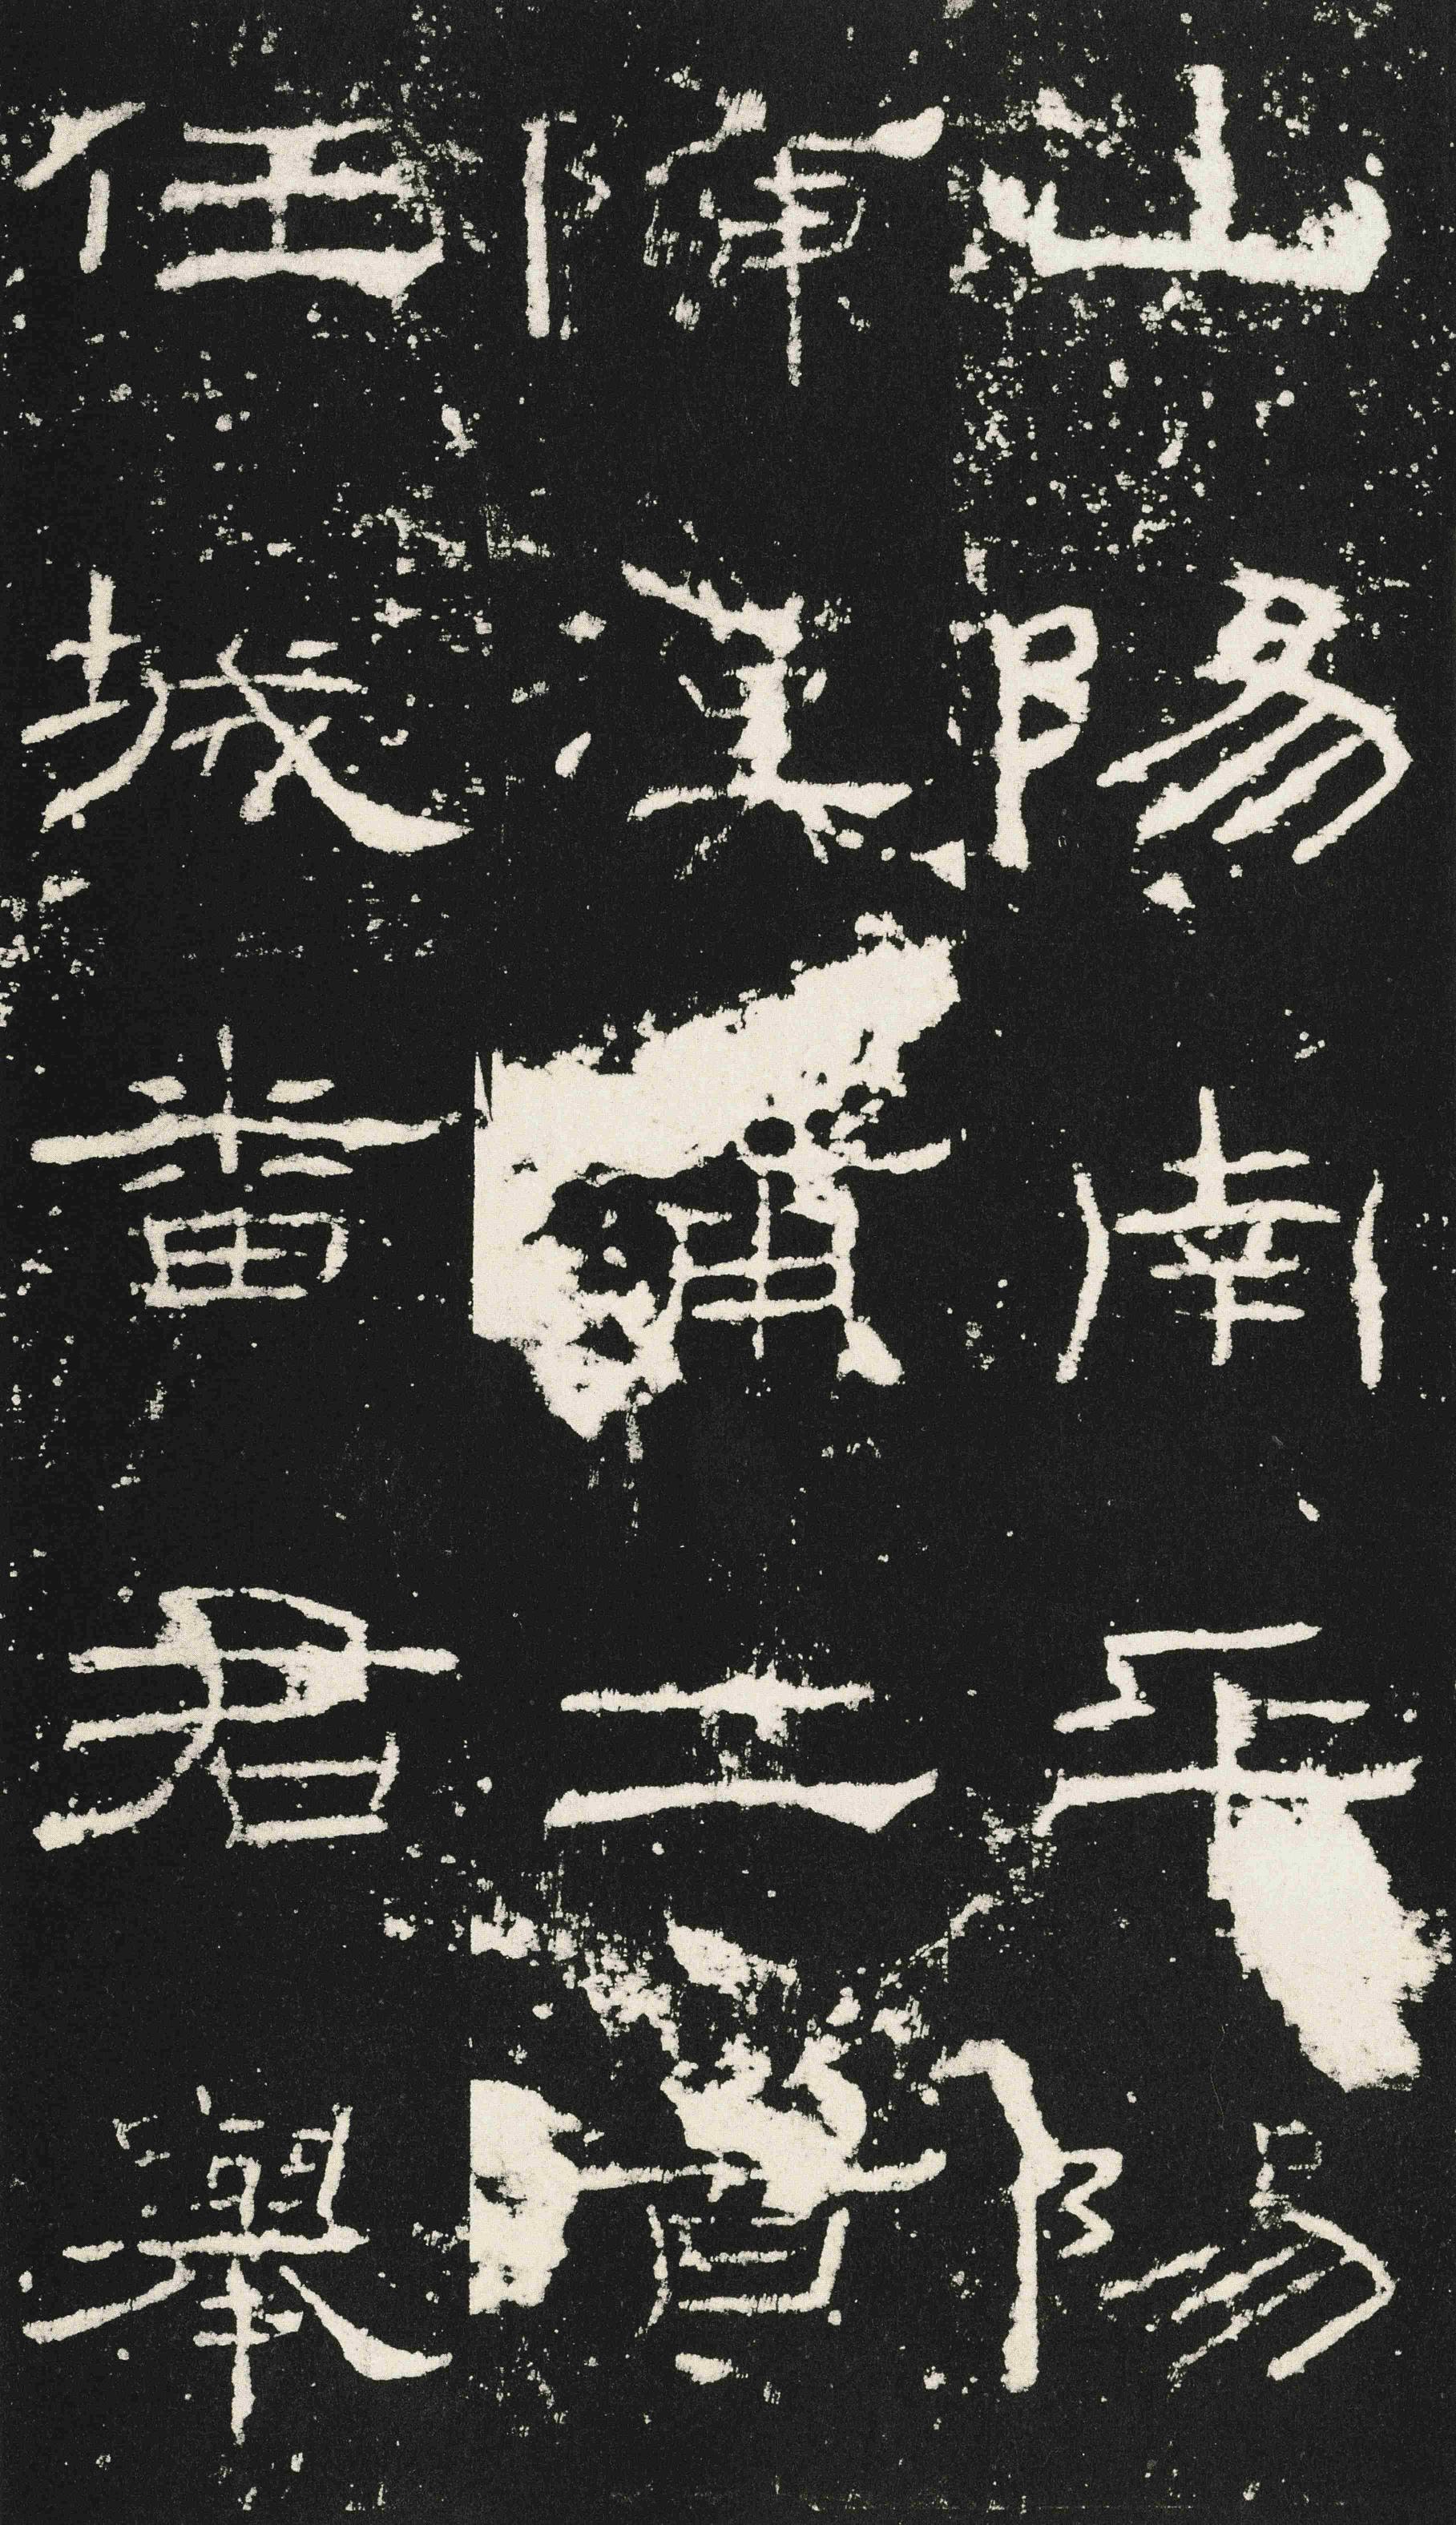 山陽南平陽
陳漢甫二百
任城番君舉